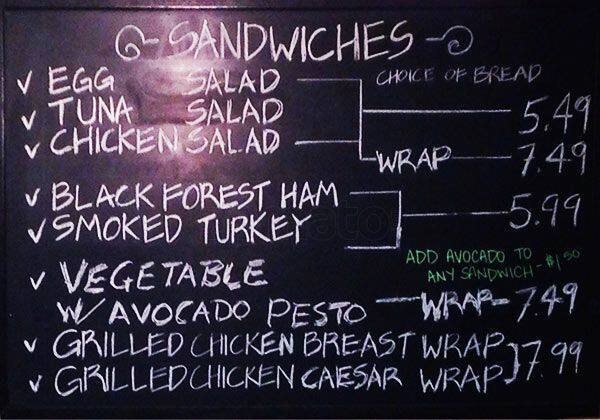 SANDWICHES
CHOICE OF BREAD
✓ EGG SALAD
✓ TUNA SALAD 5.49
✓ CHICKEN SALAD
WRAP 7.49
✓ BLACK FOREST HAM
✓ SMOKED TURKEY 5.99
ADD AVOCADO TO
ANY SANDWICH - $1.50
✓ VEGETABLE
W/ AVOCADO PESTO — WRAP - 7.49
✓ GRILLED CHICKEN BREAST WRAP
✓ GRILLED CHICKEN CAESAR WRAP } 7.99